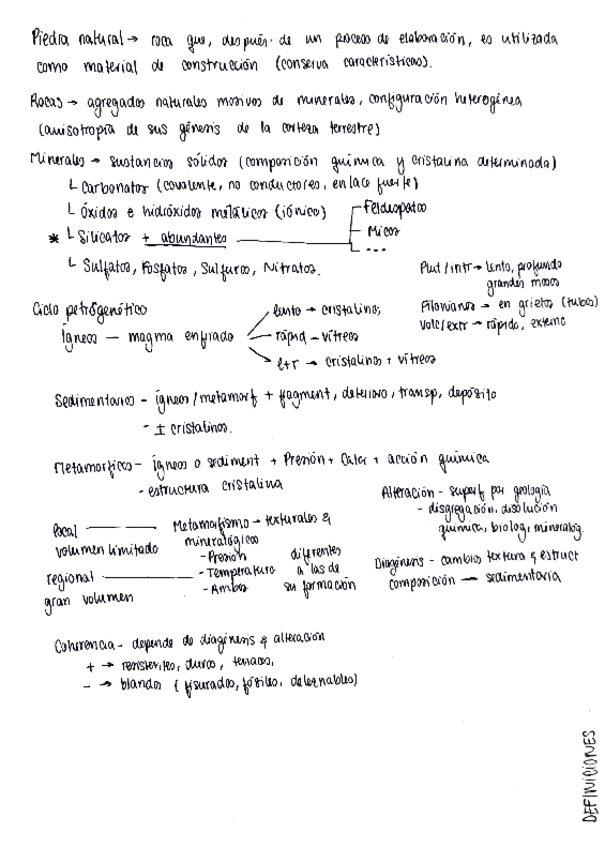 Piedra natural → roca que, después de un proceso de elaboración, es utilizada
como material de construcción (conserva características).
Rocas → agregados naturales masivos de minerales, configuración heterogénea
(anisotropía de sus génesis de la corteza terrestre)
Minerales → sustancias sólidas (composición química y cristalina determinada)
└ Carbonatos (covalente, no conductores, enlace fuerte)
└ Óxidos e hidróxidos metálicos (iónico)
* └ Silicatos + abundantes
Feldespatos
Micas
...
└ Sulfatos, Fosfatos, Sulfuros, Nitratos.
Plut / intr → lento, profundo
grandes masas
Filonianas → en grietas (tubos)
Volc/extr → rápido, externo
Ciclo petrogenético
Ígneas — magma enfriado
lento → cristalinas
rápid — vítreas
l+r → cristalinas + vítreas
Sedimentarias - ígneas / metamorf + fragment, deterioro, transp, depósito
- ± cristalinas.
Metamórficas - ígneas o sediment + Presión + Calor + acción química
- estructura cristalina
Alteración - superf por geología
- disgregación, disolución
química, biolog, mineralóg.
local
volumen limitado
regional
gran volumen
Metamorfismo → texturales y
mineralógicos
- Presión
- Temperatura
- Ambos
diferentes
a las de
su formación
Diagénesis - cambios textura y estruct
composición → sedimentaria
Coherencia - depende de diagénesis y alteración
+ → resistentes, duras, tenaces,
- → blandas ( fisuradas, fósiles, deleznables)
DEFINICIONES